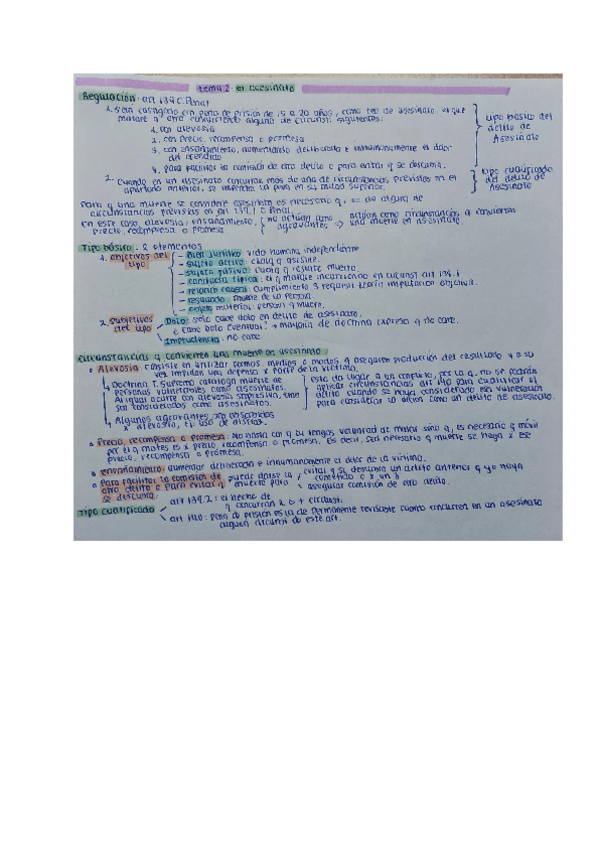 tema 2: el asesinato
Regulación: art 139 C. Penal
1. Será castigado con pena de prisión de 15 a 20 años, como reo de asesinato, el que
matare a otro concurriendo alguna de circunst. siguientes:
1. con alevosía
2. con precio, recompensa o promesa
3. con ensañamiento, aumentando deliberada e inhumanamente el dolor
del ofendido
4. para facilitar la comisión de otro delito o para evitar q se descubra.
tipo básico del
delito de
Asesinato
2. Cuando en un asesinato concurran más de una de circunstancias previstas en el
apartado anterior, se impondrá la pena en su mitad superior.
tipo cualificado
del delito de
Asesinato
Para q una muerte se considere asesinato es necesario q, se de alguna de
circunstancias previstas en art 139.1 C. Penal.
En este caso, alevosía, ensañamiento,
precio, recompensa o promesa
no actúan como
agravantes
actúan como circunstancias q convierten
una muerte en asesinato.
Tipo básico: 2 elementos
1. objetivos del
tipo
- Bien jurídico: vida humana independiente
- sujeto activo: cualq q asesine.
- sujeto pasivo: cualq q resulte muerto.
- conducta típica: el q matare incurriendo en circunst art 139.1
- relación causal: cumplimiento 3 requisitos imputación objetiva.
- resultado: muerte de la persona.
- objeto material: persona q muere.
2. subjetivos
del tipo
Dolo: solo cabe dolo en delito de asesinato,
¿cabe dolo eventual? → mayoría de doctrina expresa q no cabe.
Imprudencia: no cabe
Circunstancias q convierten una muerte en asesinato
Alevosía: consiste en utilizar formas, medios o modos q aseguren producción del resultado y a su
vez impidan una defensa x parte de la víctima.
Doctrina T. Supremo cataloga muerte de
personas vulnerables como asesinatos.
Al igual ocurre con alevosía sorpresiva,
son considerados como asesinatos.
esto da lugar a un conflicto, por lo q no se podrán
aplicar circunstancias art 140 para cualificar el
delito cuando se haya considerado esa vulneración
para considerar la acción como un delito de asesinato.
Algunos agravantes son absorbidos
x alevosía, ej: uso de disfraz.
Precio, recompensa o promesa: No basta con q tu tengas voluntad de matar sino q, es necesario q móvil
por el q mates es x precio, recompensa o promesa. Es decir, será necesario q muerte se haga x ese
precio, recompensa o promesa.
ensañamiento: aumentar deliberada e inhumanamente el dolor de la víctima.
Para facilitar la comisión de
otro delito o para evitar q
se descubra:
puede darse la
muerte para
evitar q se descubra un delito anterior q yo haya
cometido
asegurar comisión de otro delito.
Tipo cualificado
art 139.2: el hecho de
q concurran 2 o + circunst.
art 140: pena de prisión es la de permanente revisable cuando concurren en un asesinato
alguna circunst de este art.